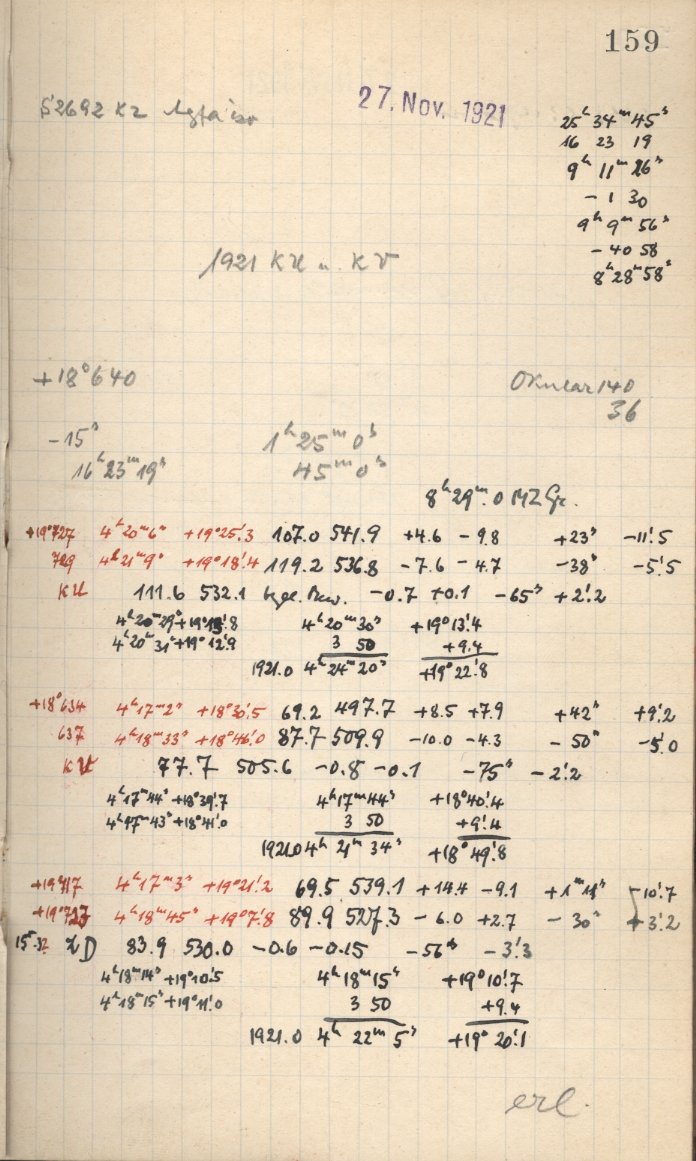 159
27. Nov. 1921
S'2692 KZ
25ʰ 34ᵐ 45ˢ
16 23 19
9ʰ 11ᵐ 26ˢ
- 1 30
9ʰ 9ᵐ 56ˢ
- 40 58
8ʰ 28ᵐ 58ˢ
1921 KU u. KV
+18°640
Okular 140
36
-15ˢ 1ʰ 25ᵐ 0ˢ
16ʰ 23ᵐ 19ˢ 45ᵐ 0ˢ
8ʰ 29ᵐ.0 MZ Gr.
+19°727 4ʰ 20ᵐ 6ˢ +19°25!3 107.0 541.9 +4.6 -9.8 +23ˢ -11!5
729 4ʰ 21ᵐ 9ˢ +19°18!4 119.2 536.8 -7.6 -4.7 -38ˢ -5!5
KU 111.6 532.1 tgl. Bew. -0.7 +0.1 -65ˢ +2!2
4ʰ 20ᵐ 29ˢ +19°13!8 4ʰ 20ᵐ 30ˢ +19°13!4
4ʰ 20ᵐ 31ˢ +19°12!9 3 50 +9.4
1921.0 4ʰ 24ᵐ 20ˢ +19°22!8
+18°634 4ʰ 17ᵐ 2ˢ +18°30!5 69.2 497.7 +8.5 +7.9 +42ˢ +9!2
637 4ʰ 18ᵐ 33ˢ +18°46!0 87.7 509.9 -10.0 -4.3 -50ˢ -5!0
KV 77.7 505.6 -0.8 -0.1 -75ˢ -2!2
4ʰ 17ᵐ 44ˢ +18°39!7 4ʰ 17ᵐ 44ˢ +18°40!4
4ʰ 17ᵐ 43ˢ +18°41!0 3 50 +9!4
1921.0 4ʰ 21ᵐ 34ˢ +18°49!8
+19°717 4ʰ 17ᵐ 3ˢ +19°21!2 69.5 539.1 +14.4 -9.1 +1ᵐ 11ˢ -10!7
+19°723 4ʰ 18ᵐ 45ˢ +19°7!8 89.9 527.3 -6.0 +2.7 -30ˢ +3!2
83.9 530.0 -0.6 -0.15 -56ˢ -3!3
4ʰ 18ᵐ 14ˢ +19°10!5 4ʰ 18ᵐ 15ˢ +19°10!7
4ʰ 18ᵐ 15ˢ +19°11!0 3 50 +9.4
1921.0 4ʰ 22ᵐ 5ˢ +19°20!1
erl.